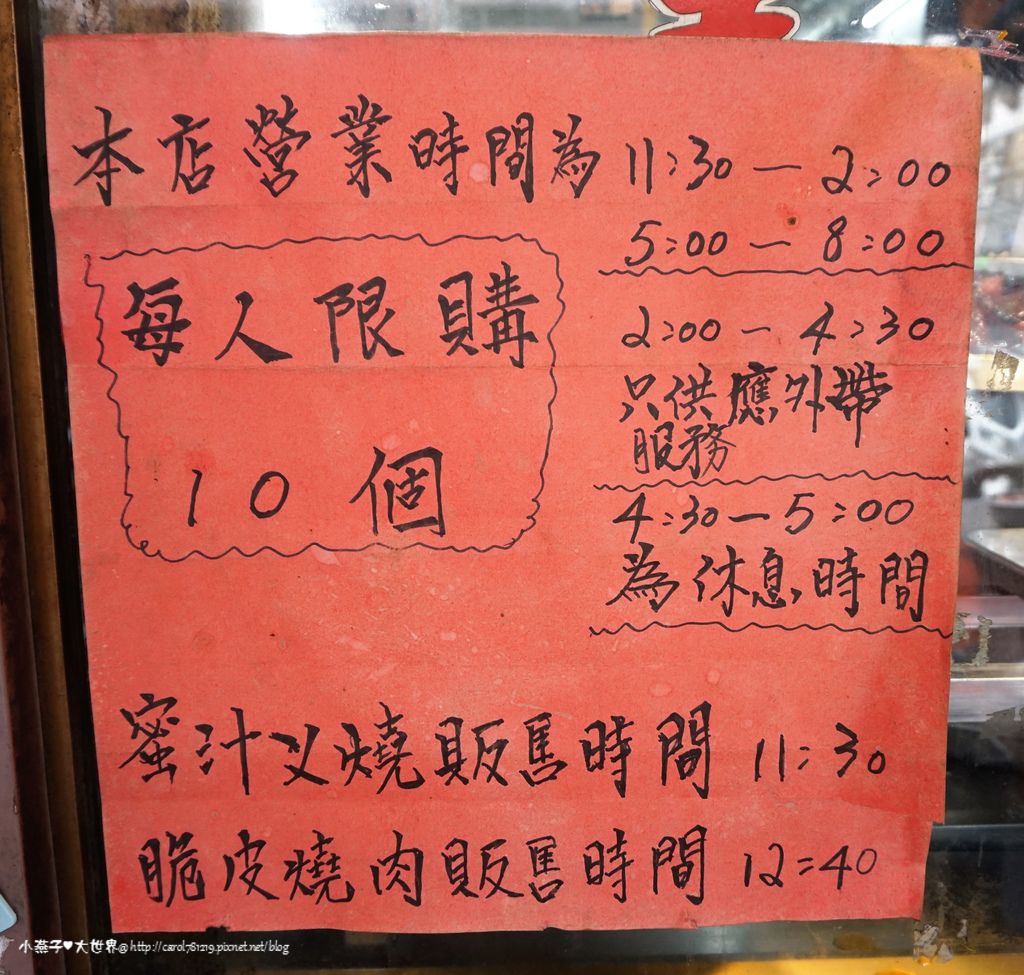 本店營業時間為 11:30－2:00
5:00－8:00
每人限購
10個
2:00－4:30
只供應外帶
服務
4:30－5:00
為休息時間
蜜汁叉燒販售時間 11:30
脆皮燒肉販售時間 12:40
小燕子♥大世界@http://carol781219.pixnet.net/blog